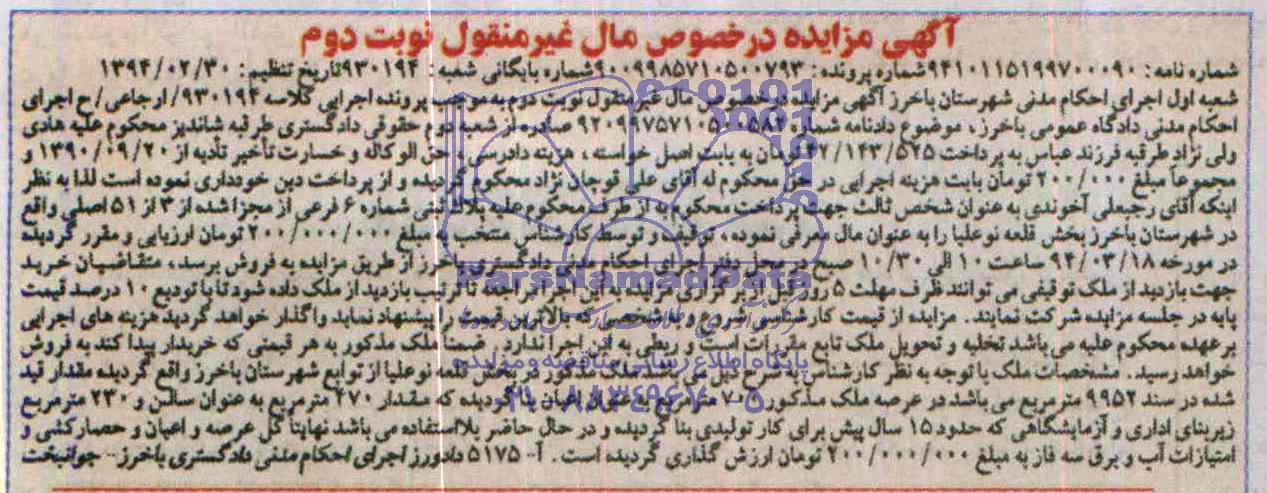 آگهی مزایده درخصوص مال غیرمنقول نوبت دوم
شماره نامه: ۹۴۱۰۱۱۵۱۹۹۷۰۰۰۹۰ شماره پرونده: ۹۰۰۹۹۸۵۷۱۰۵۰۰۷۹۳ شماره بایگانی شعبه: ۹۳۰۱۹۴ تاریخ تنظیم: ۱۳۹۴/۰۲/۳۰
شعبه اول اجرای احکام مدنی شهرستان باخرز آگهی مزایده درخصوص مال غیرمنقول نوبت دوم به موجب پرونده اجرایی کلاسه ۹۳۰۱۹۴/ارجاعی/ح اجرای
احکام مدنی دادگاه عمومی باخرز، موضوع دادنامه شماره صادره از شعبه دوم حقوقی دادگستری طرقبه شاندیز محکوم علیه هادی
ولی نژاد طرقبه فرزند عباس به پرداخت تومان به بابت اصل خواسته، هزینه دادرسی، حق الوکاله و خسارت تأخیر تأدیه از ۱۳۹۰/۰۹/۲۰ و
مجموعاً مبلغ ۲۰۰/۰۰۰ تومان بابت هزینه اجرایی در حق محکوم له آقای علی قوچان نژاد محکوم گردیده و از پرداخت دین خودداری نموده است لذا به نظر
اینکه آقای رجبعلی آخوندی به عنوان شخص ثالث جهت پرداخت محکوم به از طرف محکوم علیه پلاک ثبتی شماره ۶ فرعی از مجزا شده از ۳ از ۵۱ اصلی واقع
در شهرستان باخرز بخش قلعه نوعلیا را به عنوان مال معرفی نموده، توقیف و توسط کارشناس منتخب به مبلغ ۲۰۰/۰۰۰/۰۰۰ تومان ارزیابی و مقرر گردیده
در مورخه ۹۴/۰۳/۱۸ ساعت ۱۰ الی ۱۰/۳۰ صبح در محل دفتر اجرای احکام مدنی دادگستری باخرز از طریق مزایده به فروش برسد، متقاضیان خرید
جهت بازدید از ملک توقیفی می توانند ظرف مهلت ۵ روز قبل از برگزاری مزایده به این اجرا مراجعه تا ترتیب بازدید از ملک داده شود تا با تودیع ۱۰ درصد قیمت
پایه در جلسه مزایده شرکت نمایند. مزایده از قیمت کارشناسی شروع و به شخصی که بالاترین قیمت را پیشنهاد نماید واگذار خواهد گردید هزینه های اجرایی
بر عهده محکوم علیه می باشد تخلیه و تحویل ملک تابع مقررات است و ربطی به این اجرا ندارد. ضمناً ملک مذکور به هر قیمتی که خریدار پیدا کند به فروش
خواهد رسید. مشخصات ملک با توجه به نظر کارشناس به شرح ذیل می باشد ملک مذکور در بخش قلعه نوعلیا از توابع شهرستان باخرز واقع گردیده مقدار قید
شده در سند ۹۹۵۲ متر مربع می باشد در عرصه ملک مذکور ۷۰۰ مترمربع به عنوان اعیان بنا گردیده که مقدار ۴۷۰ مترمربع به عنوان سالن و ۲۳۰ مترمربع
زیربنای اداری و آزمایشگاهی که حدود ۱۵ سال پیش برای کار تولیدی بنا گردیده و در حال حاضر بلااستفاده می باشد نهایتاً کل عرصه و اعیان و حصارکشی و
امتیازات آب و برق سه فاز به مبلغ ۲۰۰/۰۰۰/۰۰۰ تومان ارزش گذاری گردیده است. آ-۵۱۷۵ دادورز اجرای احکام مدنی دادگستری باخرز - جوانبخت
ParsNamadData
پایگاه اطلاع رسانی مناقصه و مزایده
۰۲۱-۸۸۳۴۹۶۷۰-۵